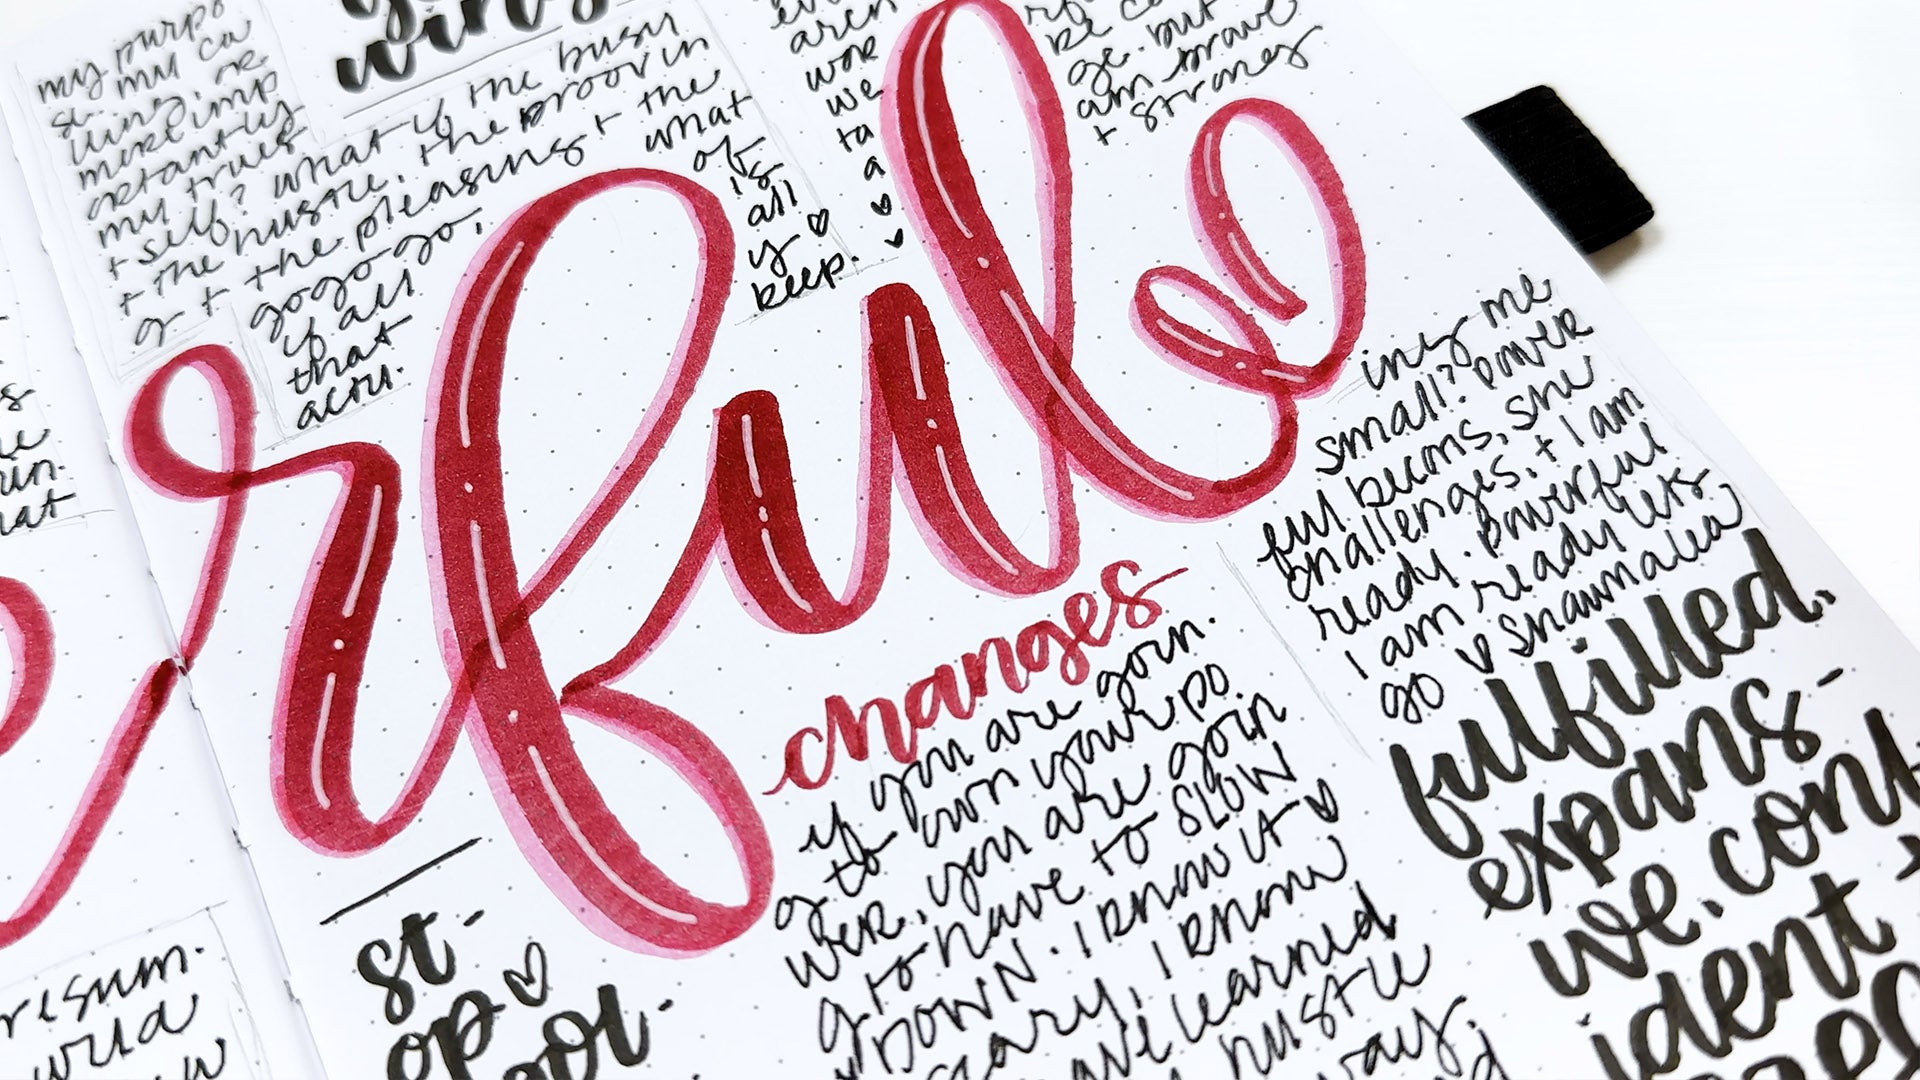 my purpo
my ca
mere imp
ortantly
my truest
+ self? what if the busy
+ the hustle, the proovin
g + the pleasing + the
gogogo,
what
if all
that
actu.
of
is
all
y ♡
keep.
aren
wor
we
ta
a
be co
ge. but
am brave
+ strong
rful
changes
if you are goin.
g to own your po
wer, you are goin
g to have to SLOW
DOWN. I know it ♡
scary, I know
we learned
hustle
way.
ing me
small? power
ful becons, she
challenges, + I am
ready. powerful
I am ready let's
go ♡ shawnalea
fulfilled.
expans-
ive. conf
ident +
st-
op ♡
un-
hat
resum.
world